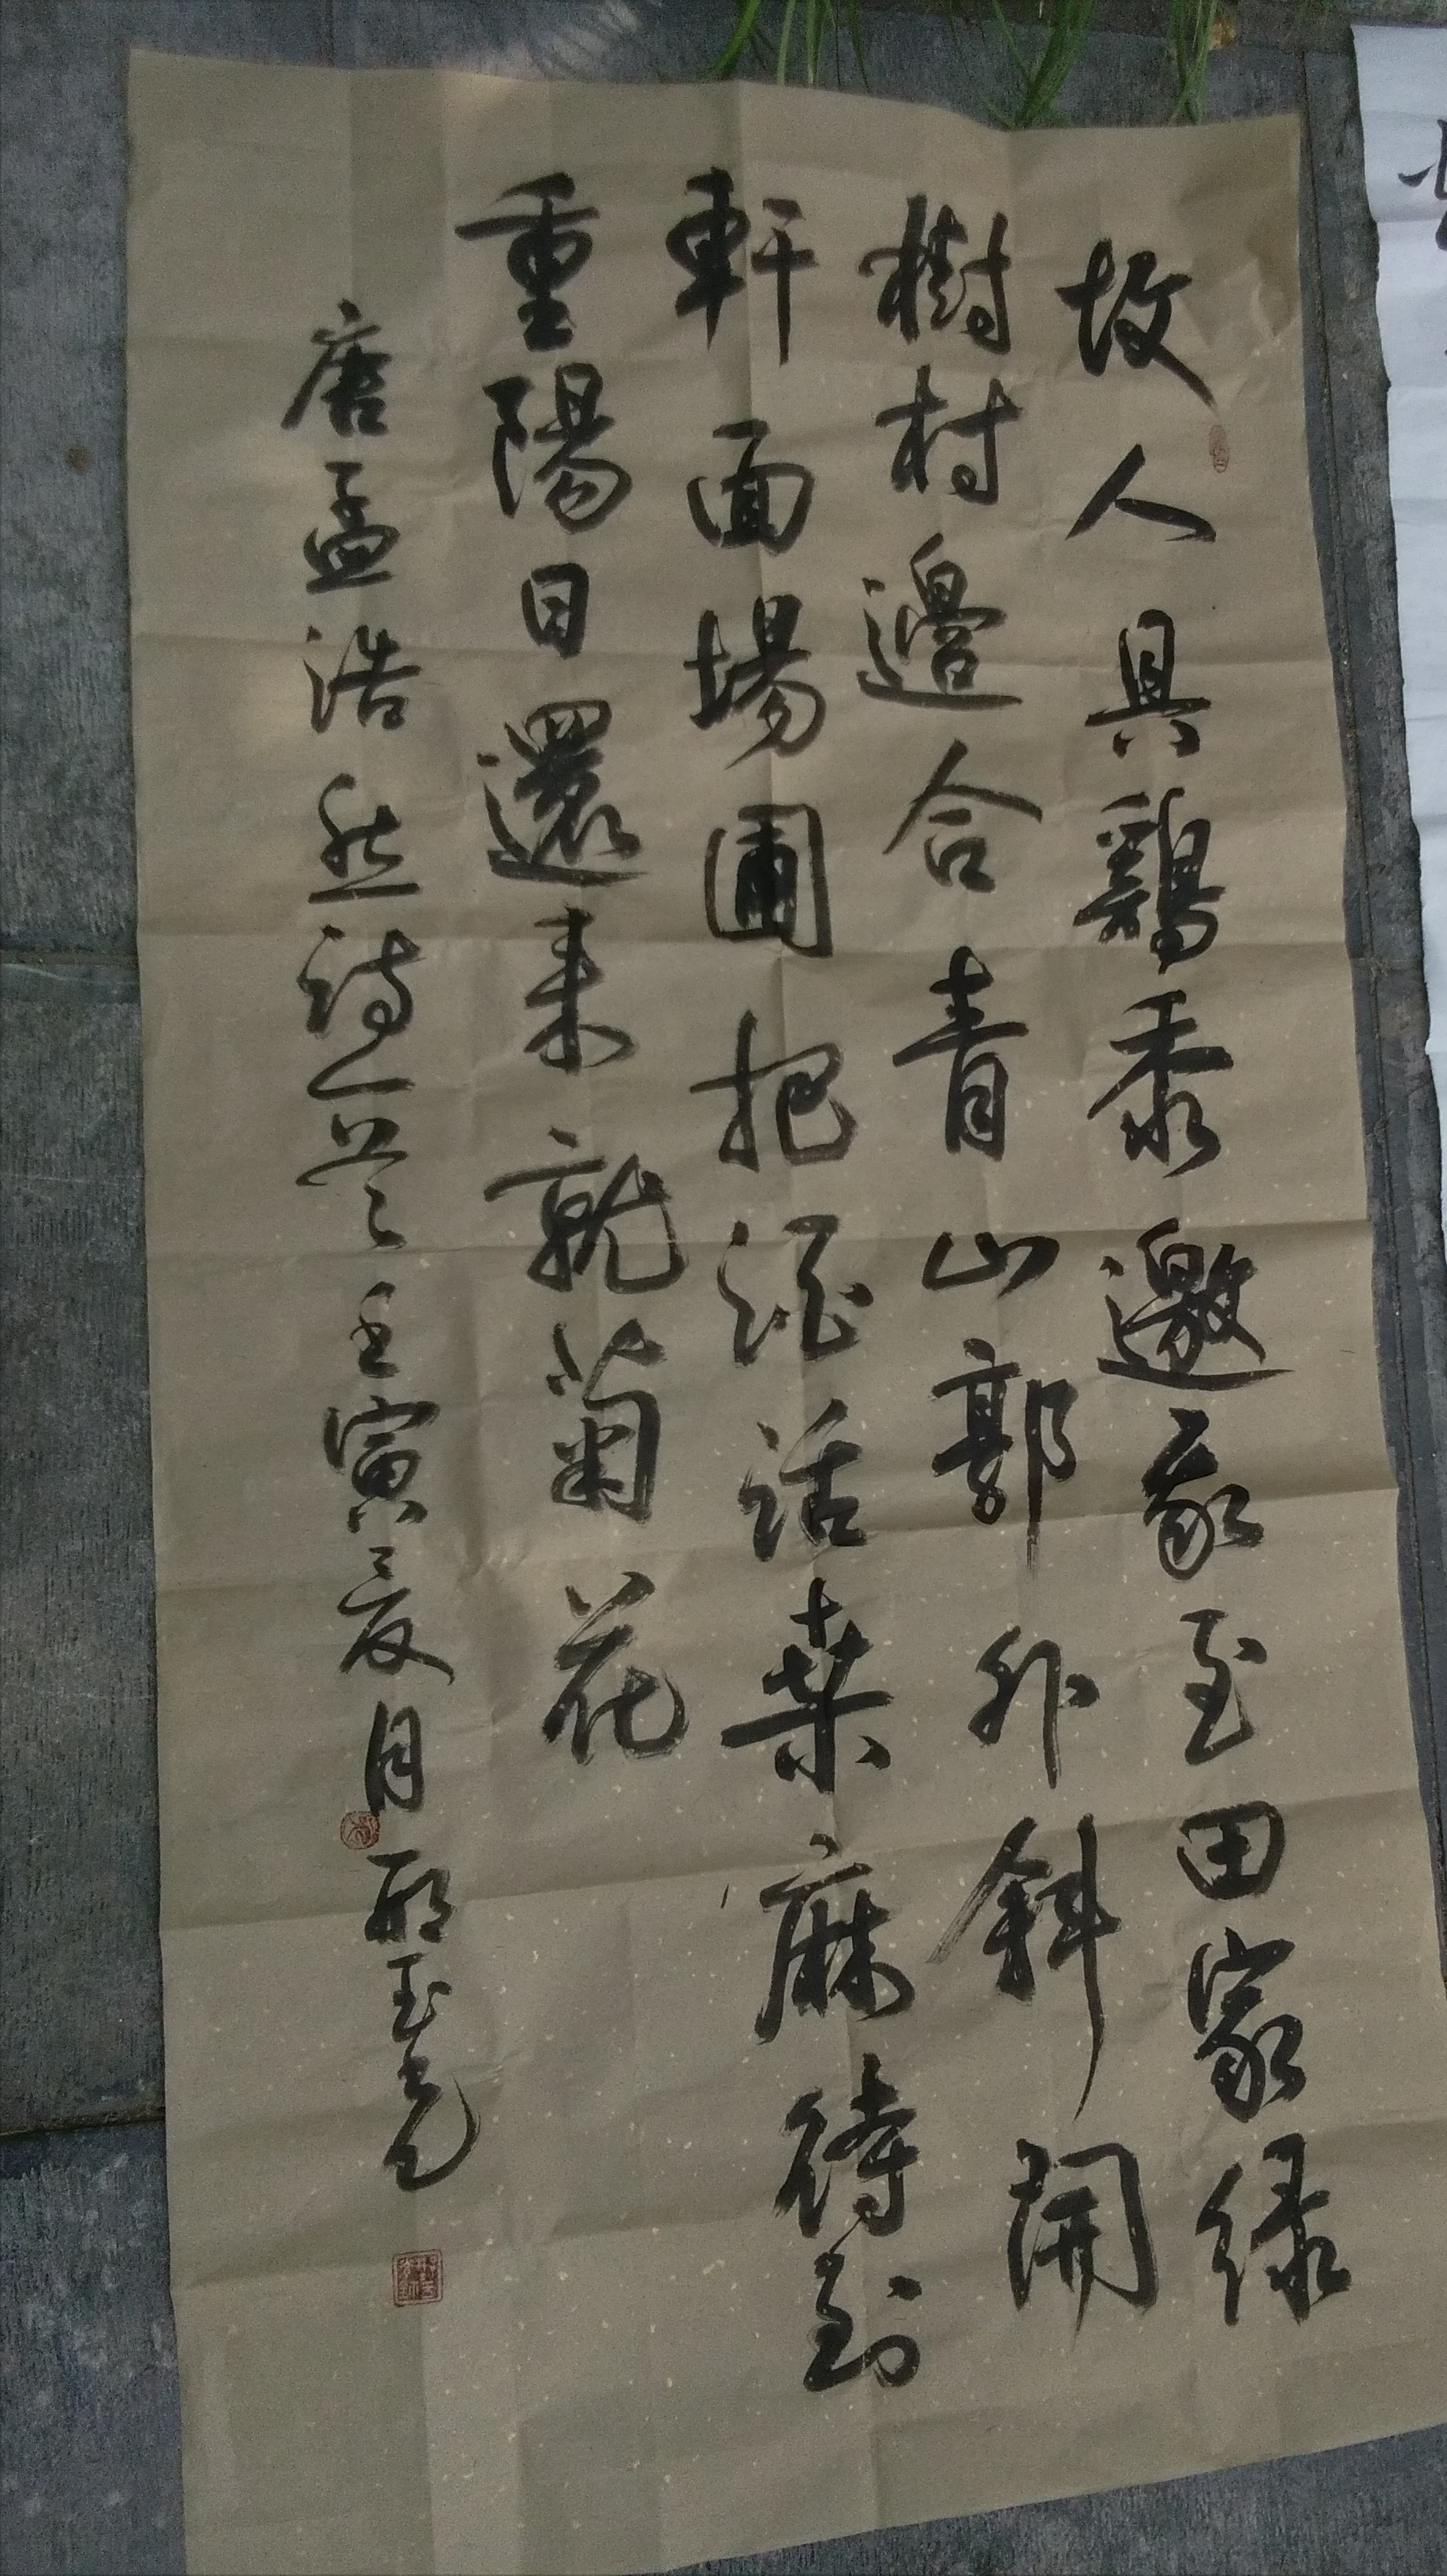 故人具鷄黍邀我至田家绿
樹村邊合青山郭外斜開
軒面場圃把酒話桑麻待到
重陽日還来就菊花
唐孟浩然詩一首壬寅夏月邢玉亮